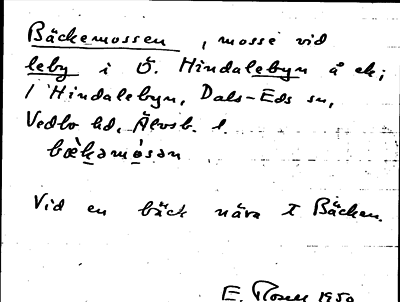 Bäckemossen, mosse vid
leby i Ö. Hindalebyn å ek;
/ Hindalebyn, Dals-Eds sn,
Vedbo hd, Älvsb. l.
bæ̀kamósan
Vid en bäck nära t Bäcken.
E. 1950